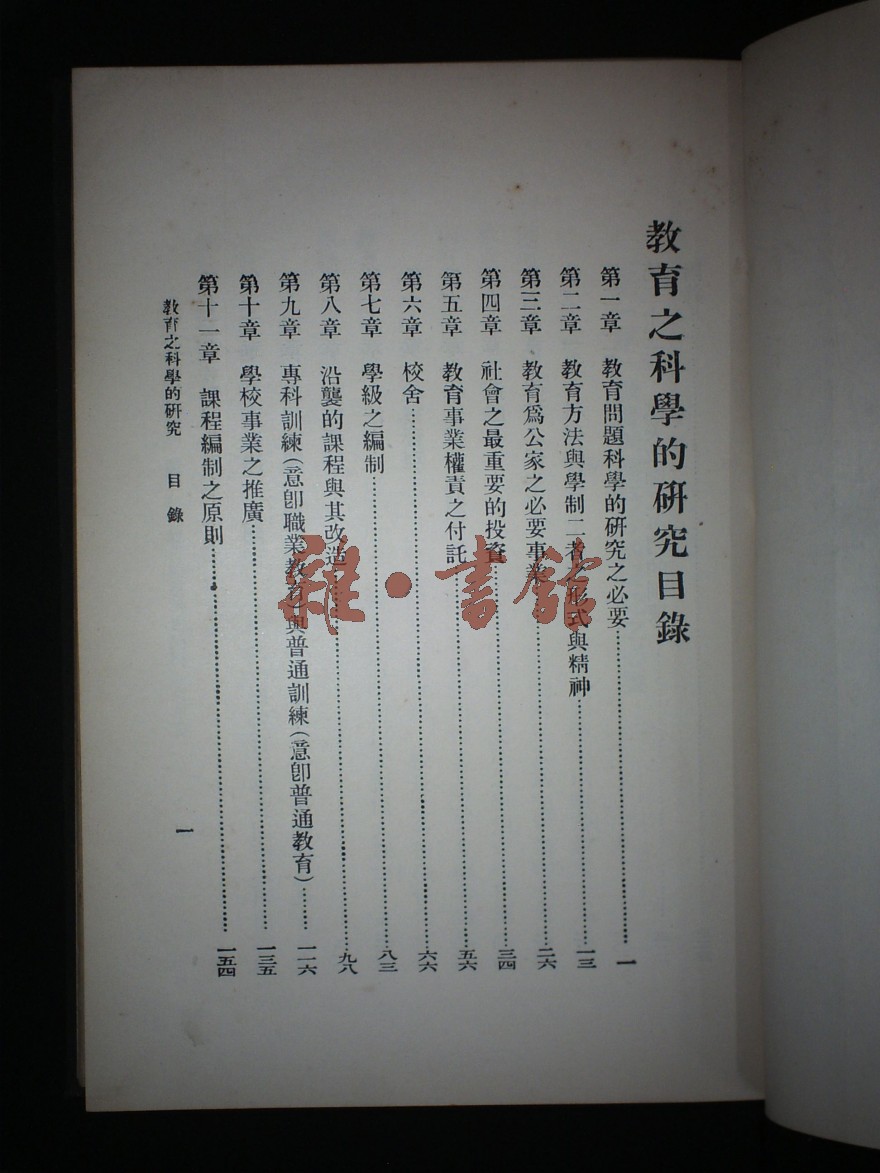 教育之科學的研究目錄
第一章 教育問題科學的研究之必要……一
第二章 教育方法與學制二者之形式與精神……一三
第三章 教育爲公家之必要事業……二六
第四章 社會之最重要的投資……三四
第五章 教育事業權責之付託……五六
第六章 校舍……六六
第七章 學級之編制……八三
第八章 沿襲的課程與其改造……九八
第九章 專科訓練(意卽職業教育)與普通訓練(意卽普通教育)……一一六
第十章 學校事業之推廣……一三五
第十一章 課程編制之原則……一五四
教育之科學的研究 目錄 一
雜·書館